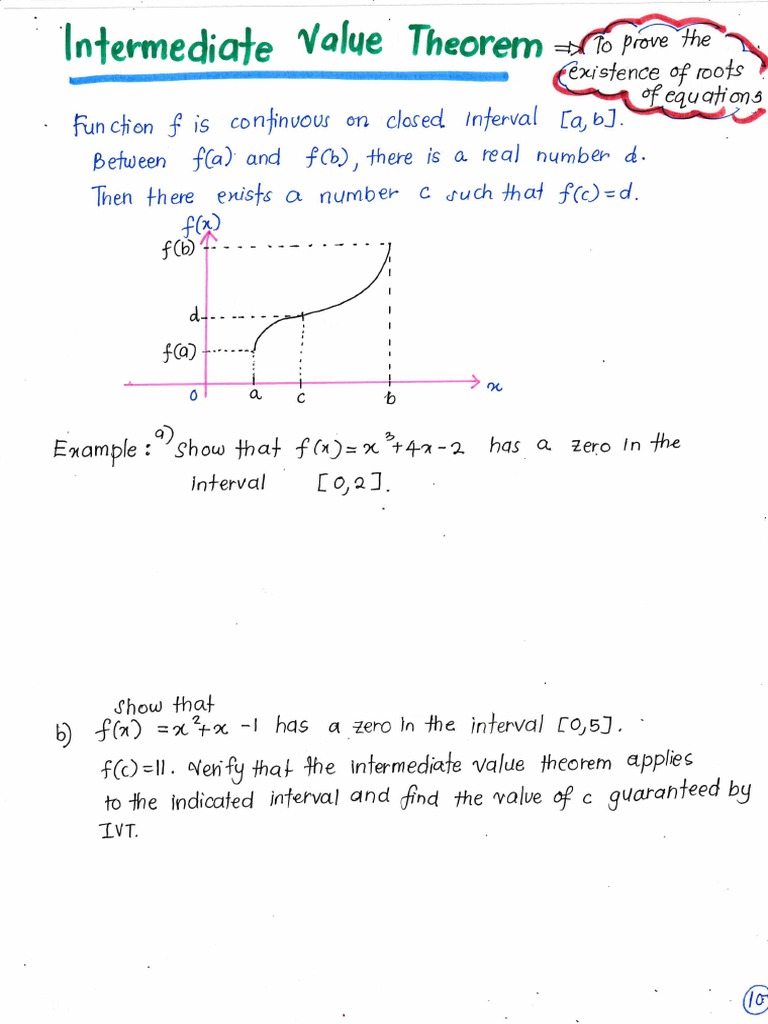 Intermediate Value Theorem ⇒ To prove the
existence of roots
of equations
Function f is continuous on closed interval [a,b].
Between f(a) and f(b), there is a real number d.
Then there exists a number c such that f(c)=d.
f(x)
f(b)
d
f(a)
0 a c b x
Example: a) Show that f(x)=x³+4x-2 has a zero in the
interval [0,2].
Show that
b) f(x) =x²+x -1 has a zero in the interval [0,5].
f(c)=11. Verify that the intermediate value theorem applies
to the indicated interval and find the value of c guaranteed by
IVT.
10